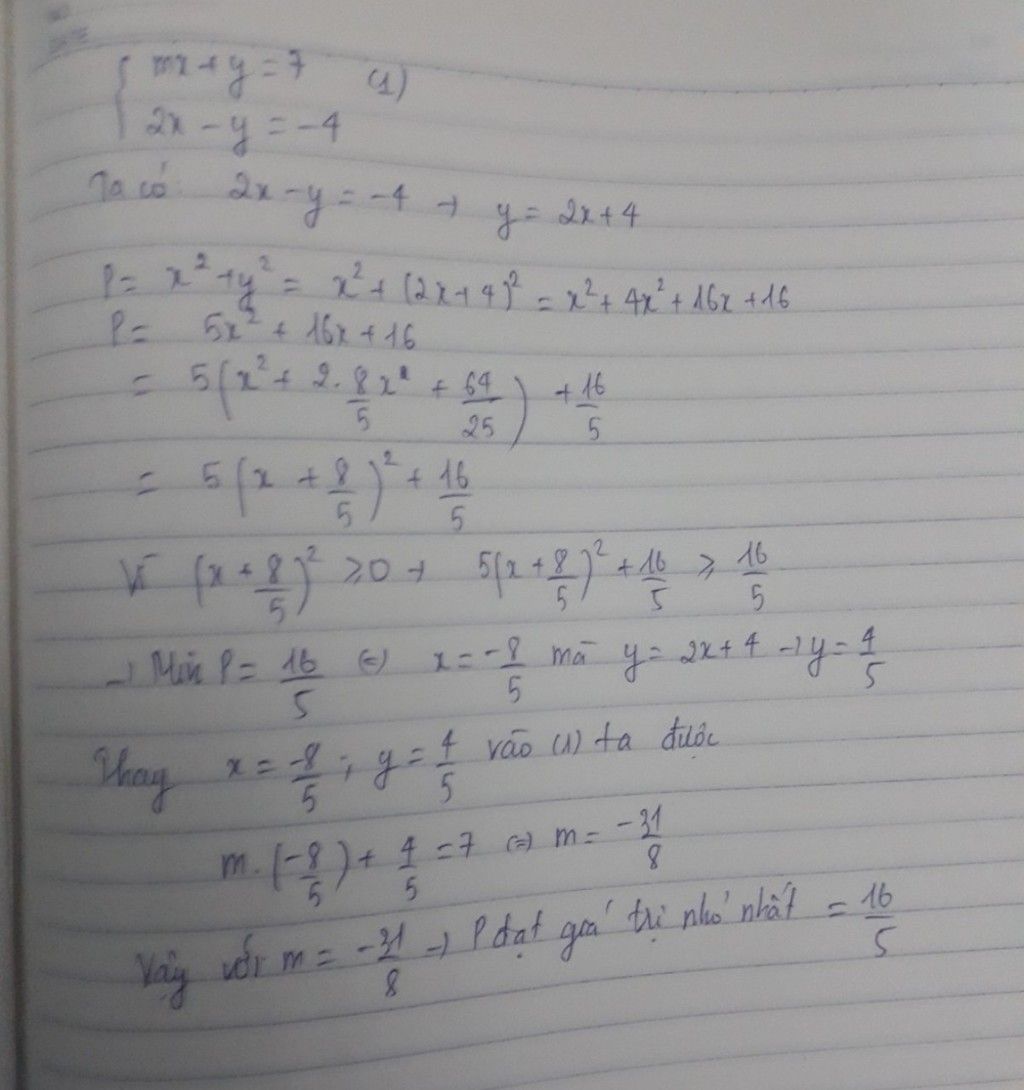 { mx + y = 7 (1)
2x - y = -4
Ta có 2x - y = -4 → y = 2x + 4
P = x² + y² = x² + (2x + 4)² = x² + 4x² + 16x + 16
P = 5x² + 16x + 16
= 5(x² + 2. 8/5 x + 64/25) + 16/5
= 5(x + 8/5)² + 16/5
Vì (x + 8/5)² ≥ 0 → 5(x + 8/5)² + 16/5 ≥ 16/5
→ Min P = 16/5 (=) x = -8/5 mà y = 2x + 4 → y = 4/5
Thay x = -8/5 ; y = 4/5 vào (1) ta được
m. (-8/5) + 4/5 = 7 (=) m = -31/8
Vậy với m = -31/8 → P đạt giá trị nhỏ nhất = 16/5